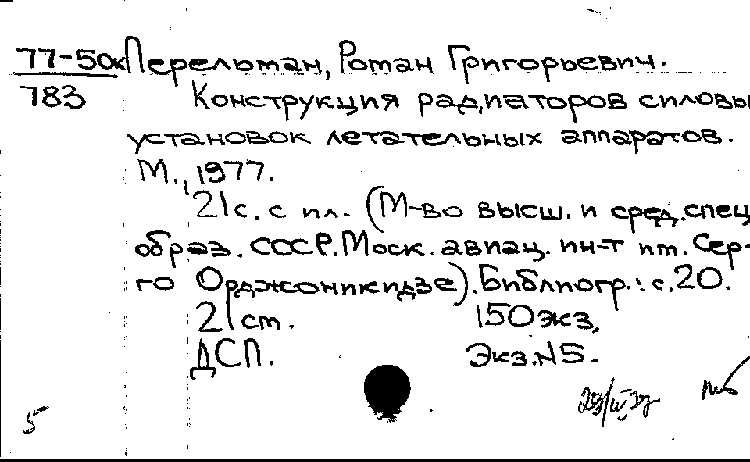 77-50к Перельман, Роман Григорьевич.
783
Конструкция радиаторов силовы
установок летательных аппаратов.
М., 1977.
21с. с ил. (М-во высш. и сред. спец
образ. СССР. Моск. авиац. ин-т им. Сер-
го Орджоникидзе). Библиогр.: с. 20.
21см. 150экз,
ДСП. Экз. N5.
5